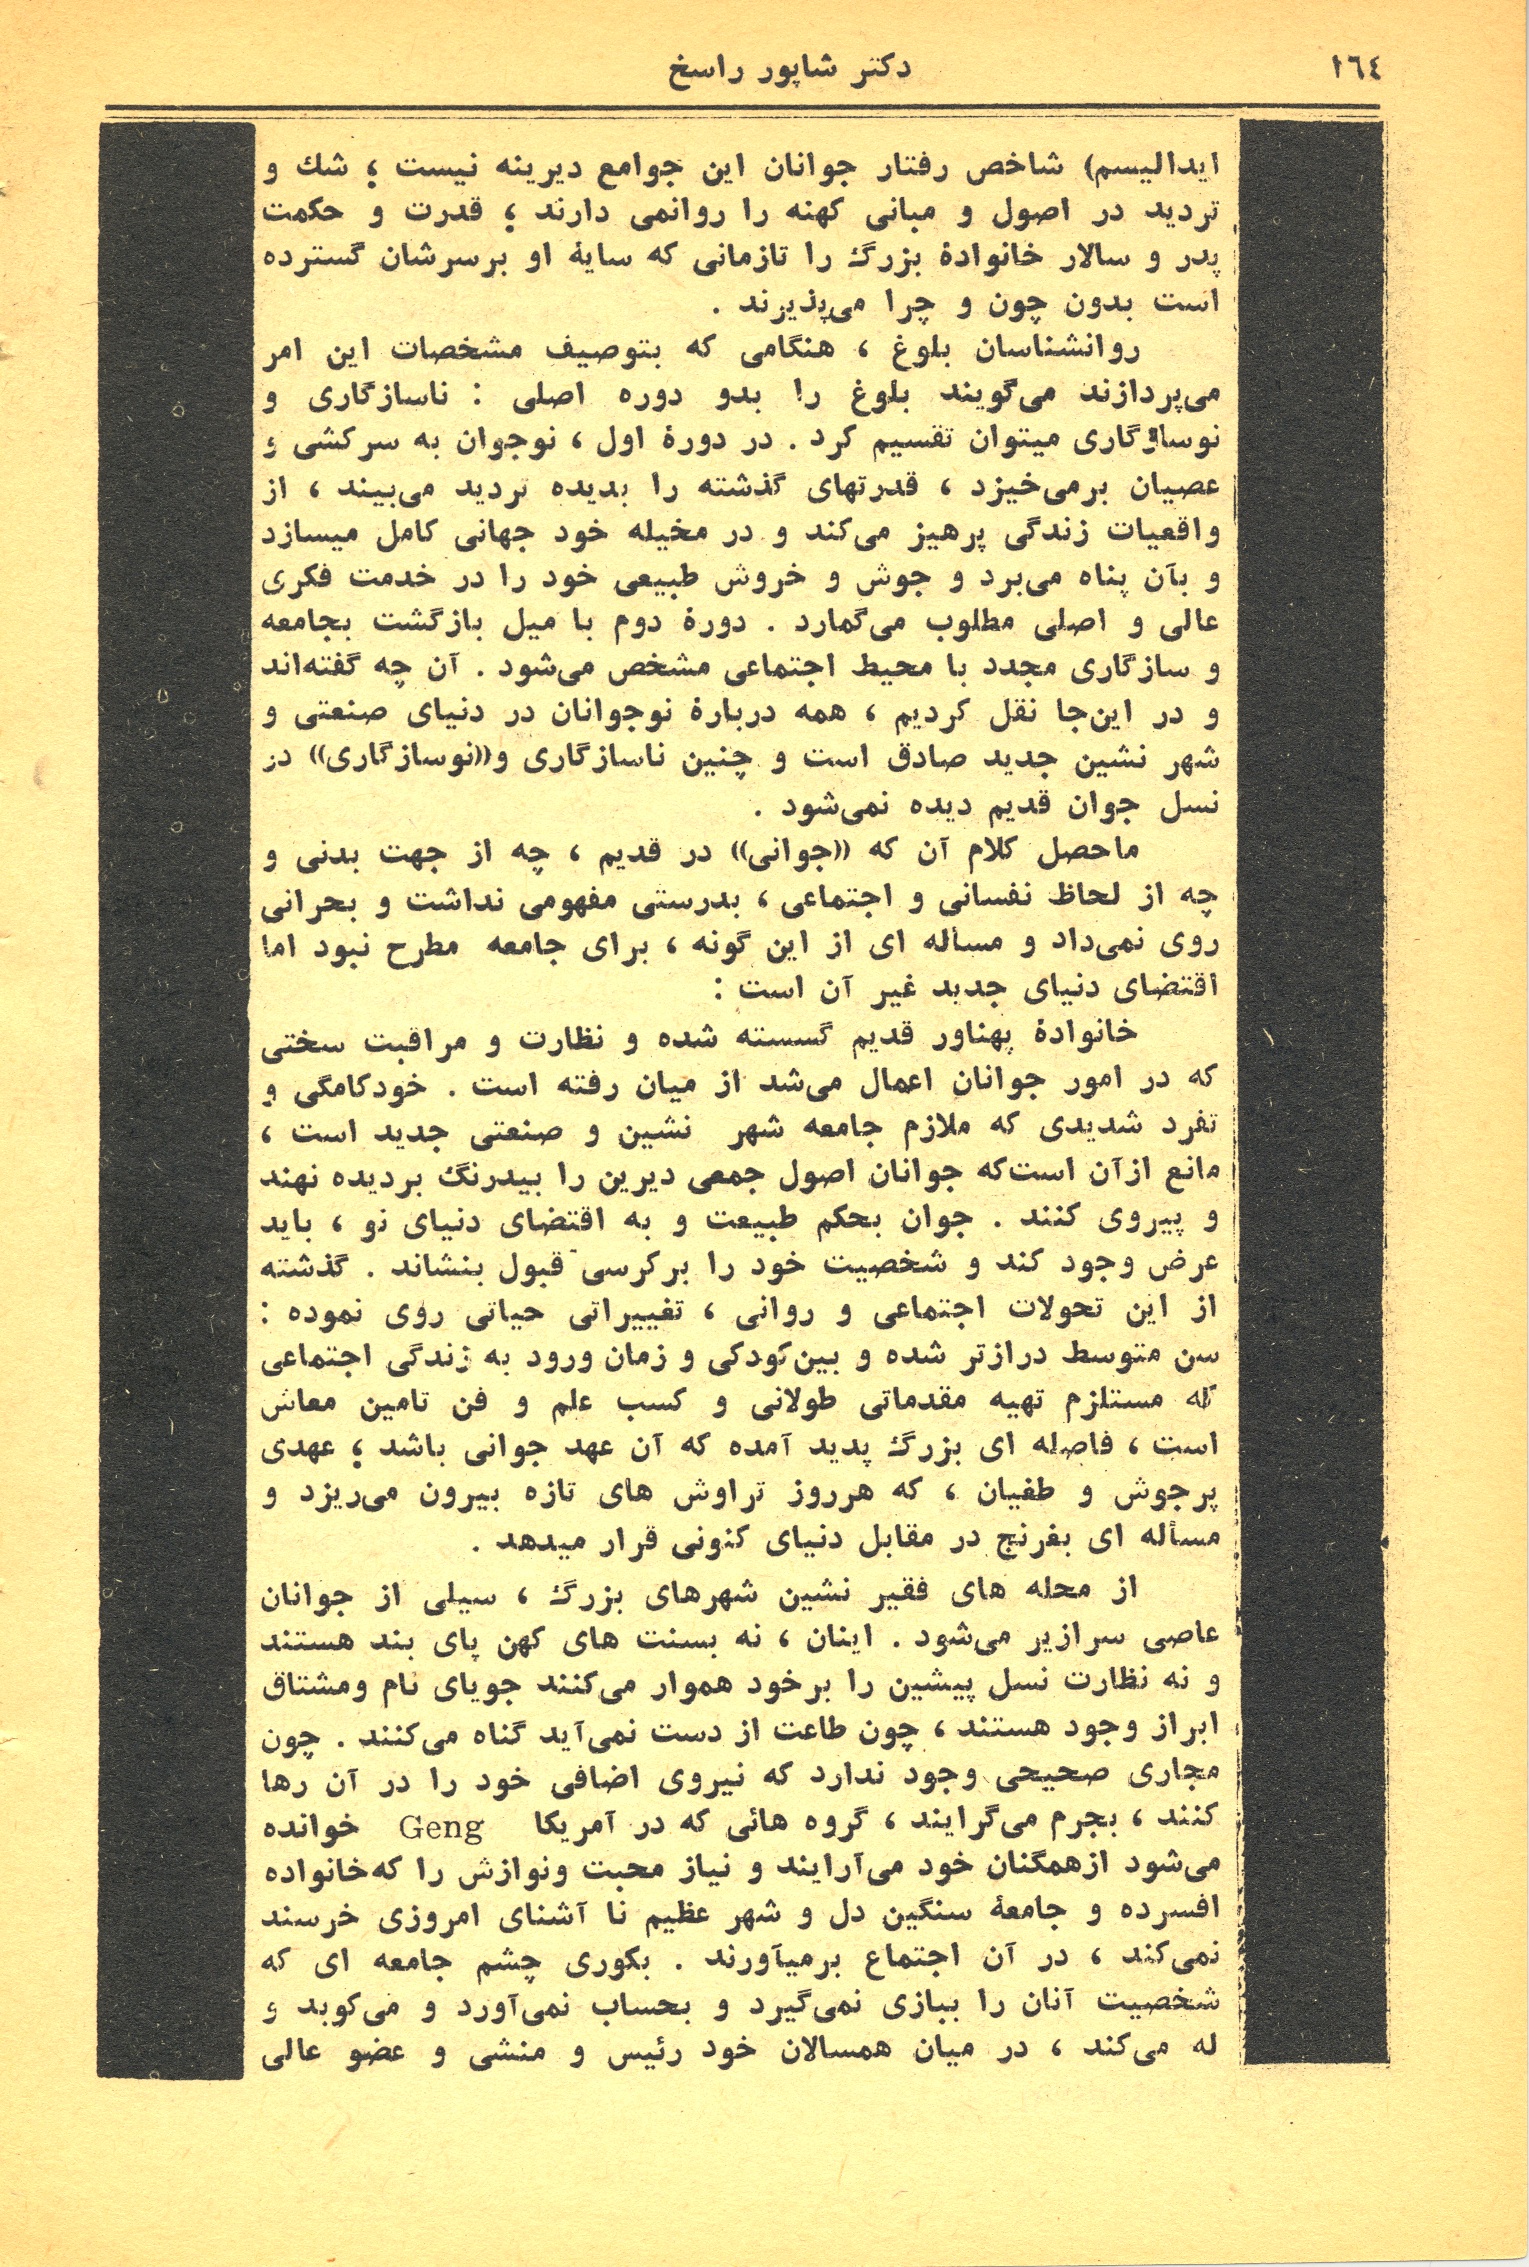 ١٦٤
دکتر شاپور راسخ
ایدالیسم) شاخص رفتار جوانان این جوامع دیرینه نیست ؛ شك و
تردید در اصول و مبانی کهنه را روانمی دارند ؛ قدرت و حکمت
پدر و سالار خانوادۀ بزرگ را تازمانی که سایۀ او برسرشان گسترده
است بدون چون و چرا می‌پذیرند .
روانشناسان بلوغ ، هنگامی که بتوصیف مشخصات این امر
می‌پردازند می‌گویند بلوغ را بدو دوره اصلی : ناسازگاری و
نوسازگاری میتوان تقسیم کرد . در دورۀ اول ، نوجوان به سرکشی و
عصیان برمی‌خیزد ، قدرتهای گذشته را بدیده تردید می‌بیند ، از
واقعیات زندگی پرهیز می‌کند و در مخیله خود جهانی کامل میسازد
و بآن پناه می‌برد و جوش و خروش طبیعی خود را در خدمت فکری
عالی و اصلی مطلوب می‌گمارد . دورۀ دوم با میل بازگشت بجامعه
و سازگاری مجدد با محیط اجتماعی مشخص می‌شود . آن چه گفته‌اند
و در این‌جا نقل کردیم ، همه دربارۀ نوجوانان در دنیای صنعتی و
شهر نشین جدید صادق است و چنین ناسازگاری و((نوسازگاری)) در
نسل جوان قدیم دیده نمی‌شود .
ماحصل کلام آن که ((جوانی)) در قدیم ، چه از جهت بدنی و
چه از لحاظ نفسانی و اجتماعی ، بدرستی مفهومی نداشت و بحرانی
روی نمی‌داد و مسأله ای از این گونه ، برای جامعه مطرح نبود اما
اقتضای دنیای جدید غیر آن است :
خانوادۀ پهناور قدیم گسسته شده و نظارت و مراقبت سختی
که در امور جوانان اعمال می‌شد از میان رفته است . خودکامگی و
تفرد شدیدی که ملازم جامعه شهر نشین و صنعتی جدید است ،
مانع ازآن است‌که جوانان اصول جمعی دیرین را بیدرنگ بردیده نهند
و پیروی کنند . جوان بحکم طبیعت و به اقتضای دنیای نو ، باید
عرض وجود کند و شخصیت خود را برکرسی قبول بنشاند . گذشته
از این تحولات اجتماعی و روانی ، تغییراتی حیاتی روی نموده :
سن متوسط درازتر شده و بین‌کودکی و زمان ورود به زندگی اجتماعی
که مستلزم تهیه مقدماتی طولانی و کسب علم و فن تامین معاش
است ، فاصله ای بزرگ پدید آمده که آن عهد جوانی باشد ؛ عهدی
پرجوش و طغیان ، که هرروز تراوش های تازه بیرون می‌ریزد و
مسأله ای بغرنج در مقابل دنیای کنونی قرار میدهد .
از محله های فقیر نشین شهرهای بزرگ ، سیلی از جوانان
عاصی سرازیر می‌شود . اینان ، نه بسنت های کهن پای بند هستند
و نه نظارت نسل پیشین را برخود هموار می‌کنند جویای نام ومشتاق
ابراز وجود هستند ، چون طاعت از دست نمی‌آید گناه می‌کنند . چون
مجاری صحیحی وجود ندارد که نیروی اضافی خود را در آن رها
کنند ، بجرم می‌گرایند ، گروه هائی که در آمریکا Geng خوانده
می‌شود ازهمگنان خود می‌آرایند و نیاز محبت ونوازش را که‌خانواده
افسرده و جامعۀ سنگین دل و شهر عظیم نا آشنای امروزی خرسند
نمی‌کند ، در آن اجتماع برمیآورند . بکوری چشم جامعه ای که
شخصیت آنان را ببازی نمی‌گیرد و بحساب نمی‌آورد و می‌کوبد و
له می‌کند ، در میان همسالان خود رئیس و منشی و عضو عالی